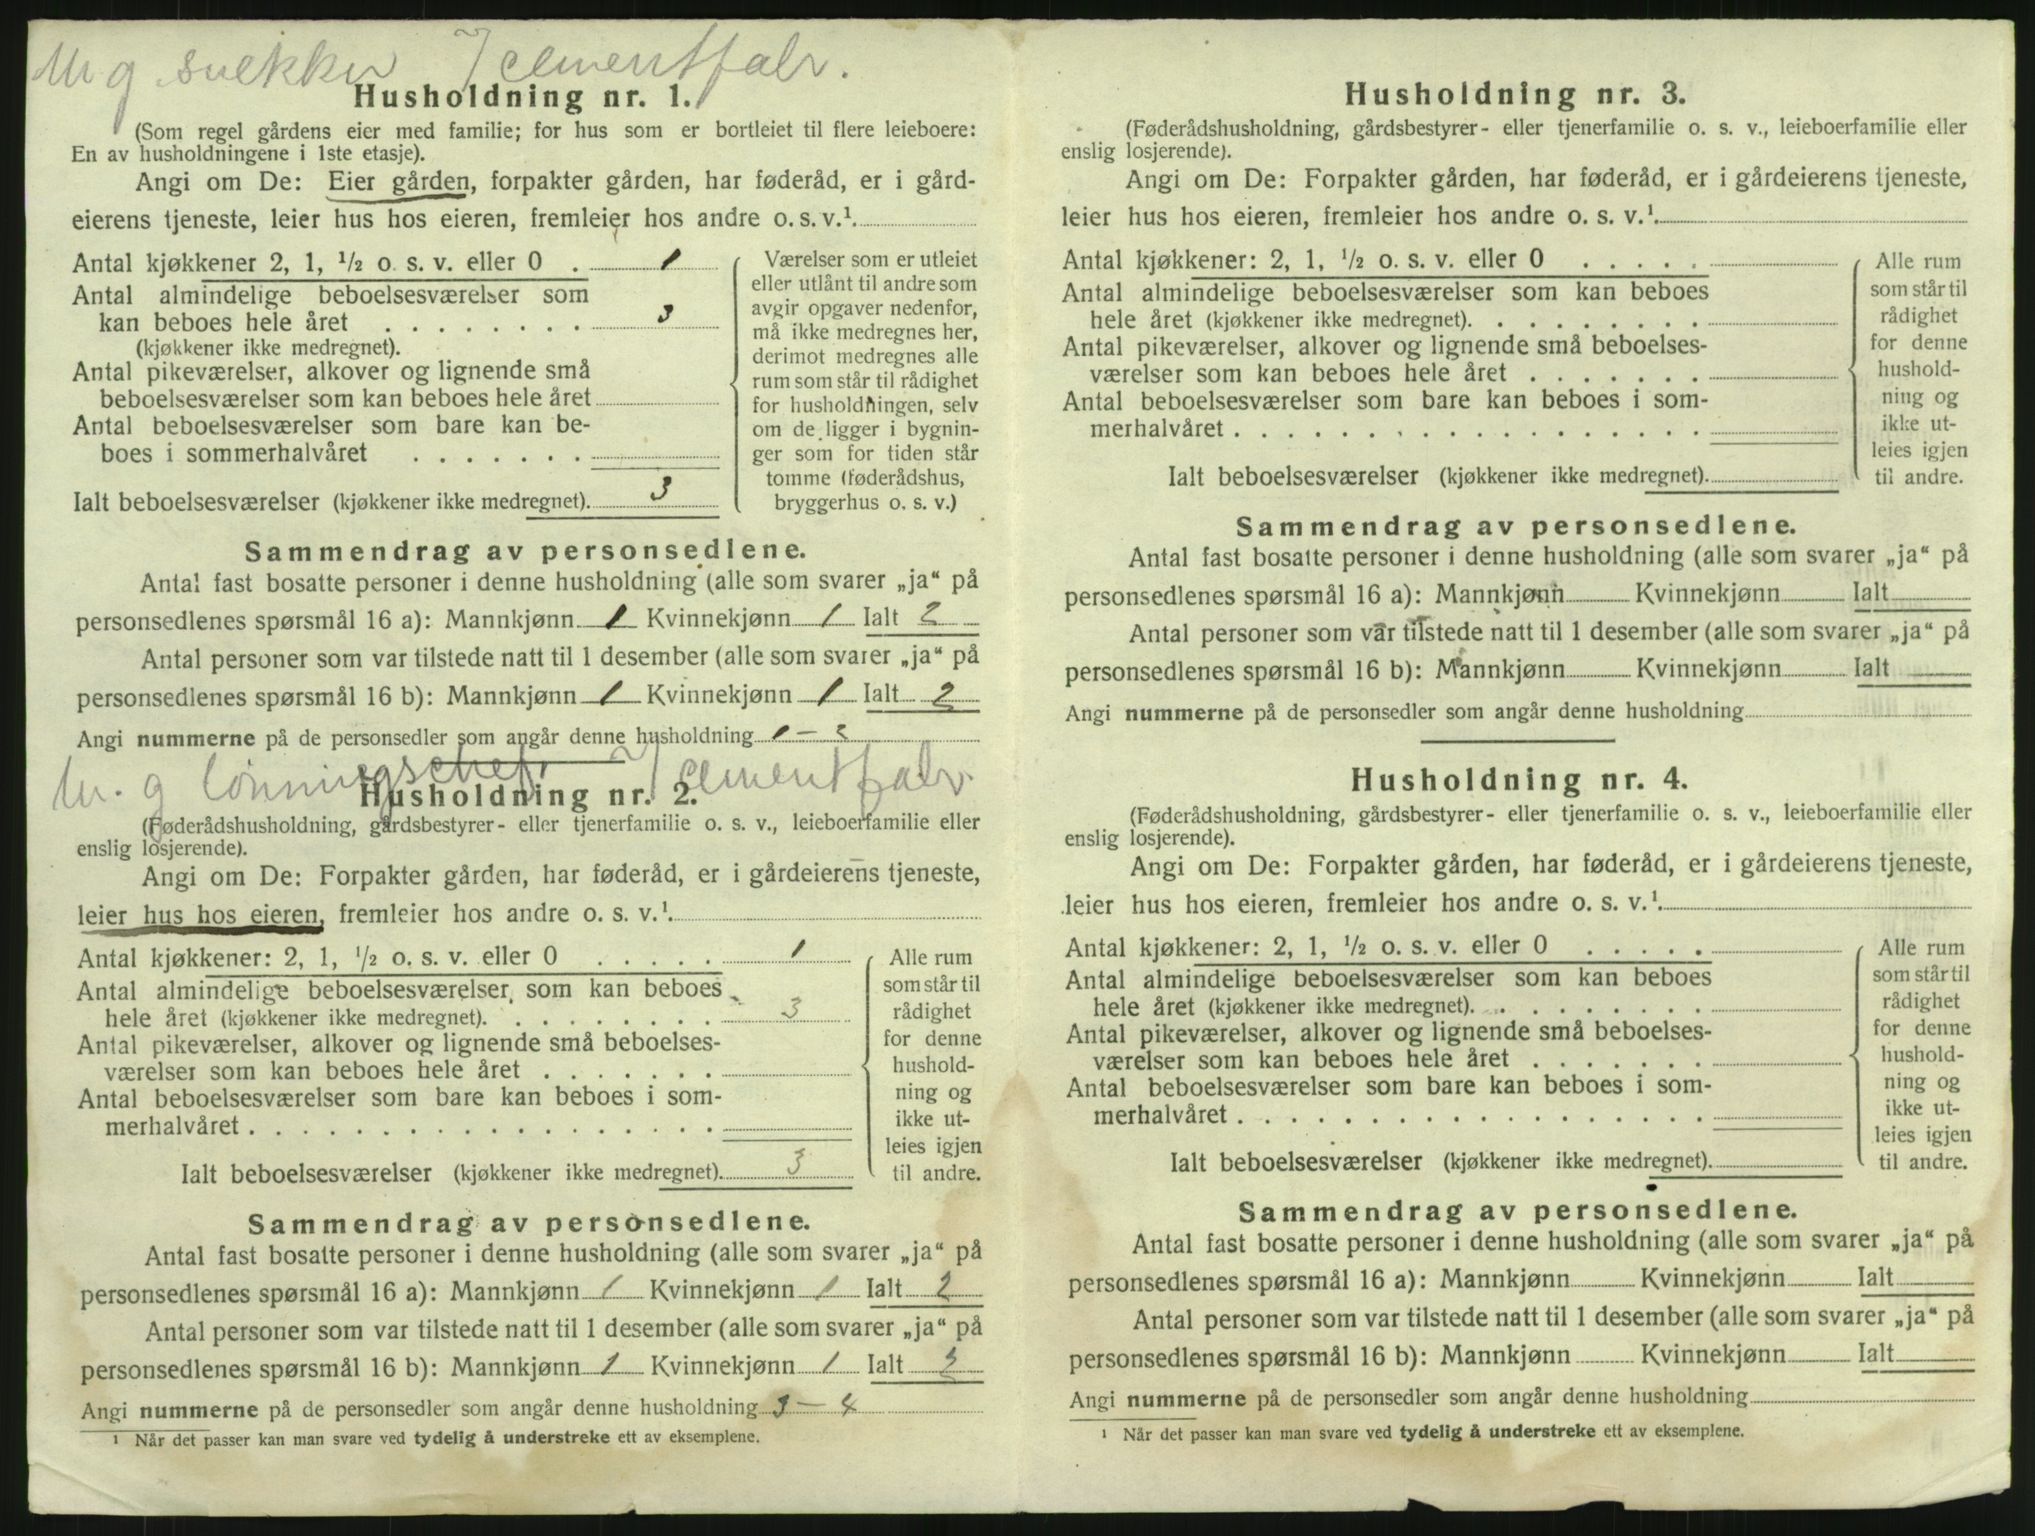 M g snekker I cementfabr.
Husholdning nr. 1.
(Som regel gårdens eier med familie; for hus som er bortleiet til flere leieboere:
En av husholdningene i 1ste etasje).
Angi om De: Eier gården, forpakter gården, har føderåd, er i gård-
eierens tjeneste, leier hus hos eieren, fremleier hos andre o. s. v.¹.
Antal kjøkkener 2, 1, ½ o. s. v. eller 0 . 1
Antal almindelige beboelsesværelser som
kan beboes hele året . . . . . . . . 3
(kjøkkener ikke medregnet).
Antal pikeværelser, alkover og lignende små
beboelsesværelser som kan beboes hele året
Antal beboelsesværelser som bare kan be-
boes i sommerhalvåret . . . . . . .
Ialt beboelsesværelser (kjøkkener ikke medregnet). 3
Værelser som er utleiet
eller utlånt til andre som
avgir opgaver nedenfor,
må ikke medregnes her,
derimot medregnes alle
rum som står til rådighet
for husholdningen, selv
om de ligger i bygnin-
ger som for tiden står
tomme (føderådshus,
bryggerhus o. s. v.)
Sammendrag av personsedlene.
Antal fast bosatte personer i denne husholdning (alle som svarer „ja“ på
personsedlenes spørsmål 16 a): Mannkjønn 1 Kvinnekjønn 1 Ialt 2
Antal personer som var tilstede natt til 1 desember (alle som svarer „ja“ på
personsedlenes spørsmål 16 b): Mannkjønn 1 Kvinnekjønn 1 Ialt 2
Angi nummerne på de personsedler som angår denne husholdning 1 – 2
M. g lønningschef. I cementfabr.
Husholdning nr. 2.
(Føderådshusholdning, gårdsbestyrer- eller tjenerfamilie o. s. v., leieboerfamilie eller
enslig losjerende).
Angi om De: Forpakter gården, har føderåd, er i gårdeierens tjeneste,
leier hus hos eieren, fremleier hos andre o. s. v.¹.
Antal kjøkkener: 2, 1, ½ o. s. v. eller 0 . . . . . 1
Antal almindelige beboelsesværelser som kan beboes
hele året (kjøkkener ikke medregnet). . . . . . . . . 3
Antal pikeværelser, alkover og lignende små beboelses-
værelser som kan beboes hele året . . . . . . .
Antal beboelsesværelser som bare kan beboes i som-
merhalvåret . . . . . . . . . . . . . . . . . .
Ialt beboelsesværelser (kjøkkener ikke medregnet). 3
Alle rum
som står til
rådighet
for denne
hushold-
ning og
ikke ut-
leies igjen
til andre.
Sammendrag av personsedlene.
Antal fast bosatte personer i denne husholdning (alle som svarer „ja“ på
personsedlenes spørsmål 16 a): Mannkjønn 1 Kvinnekjønn 1 Ialt 2
Antal personer som var tilstede natt til 1 desember (alle som svarer „ja“ på
personsedlenes spørsmål 16 b): Mannkjønn 1 Kvinnekjønn 1 Ialt
Angi nummerne på de personsedler som angår denne husholdning 3 – 4
¹ Når det passer kan man svare ved tydelig å understreke ett av eksemplene.
Husholdning nr. 3.
(Føderådshusholdning, gårdsbestyrer- eller tjenerfamilie o. s. v., leieboerfamilie eller
enslig losjerende).
Angi om De: Forpakter gården, har føderåd, er i gårdeierens tjeneste,
leier hus hos eieren, fremleier hos andre o. s. v.¹.
Antal kjøkkener: 2, 1, ½ o. s. v. eller 0 . . . . .
Antal almindelige beboelsesværelser som kan beboes
hele året (kjøkkener ikke medregnet). . . . . . . . .
Antal pikeværelser, alkover og lignende små beboelses-
værelser som kan beboes hele året . . . . . . .
Antal beboelsesværelser som bare kan beboes i som-
merhalvåret . . . . . . . . . . . . . . . . . .
Ialt beboelsesværelser (kjøkkener ikke medregnet).
Alle rum
som står til
rådighet
for denne
hushold-
ning og
ikke ut-
leies igjen
til andre.
Sammendrag av personsedlene.
Antal fast bosatte personer i denne husholdning (alle som svarer „ja“ på
personsedlenes spørsmål 16 a): Mannkjønn Kvinnekjønn Ialt
Antal personer som var tilstede natt til 1 desember (alle som svarer „ja“ på
personsedlenes spørsmål 16 b): Mannkjønn Kvinnekjønn Ialt
Angi nummerne på de personsedler som angår denne husholdning
Husholdning nr. 4.
(Føderådshusholdning, gårdsbestyrer- eller tjenerfamilie o. s. v., leieboerfamilie eller
enslig losjerende).
Angi om De: Forpakter gården, har føderåd, er i gårdeierens tjeneste,
leier hus hos eieren, fremleier hos andre o. s. v.¹.
Antal kjøkkener: 2, 1, ½ o. s. v. eller 0 . . . . .
Antal almindelige beboelsesværelser som kan beboes
hele året (kjøkkener ikke medregnet). . . . . . . . .
Antal pikeværelser, alkover og lignende små beboelses-
værelser som kan beboes hele året . . . . . . .
Antal beboelsesværelser som bare kan beboes i som-
merhalvåret . . . . . . . . . . . . . . . . . .
Ialt beboelsesværelser (kjøkkener ikke medregnet).
Alle rum
som står til
rådighet
for denne
hushold-
ning og
ikke ut-
leies igjen
til andre.
Sammendrag av personsedlene.
Antal fast bosatte personer i denne husholdning (alle som svarer „ja“ på
personsedlenes spørsmål 16 a): Mannkjønn Kvinnekjønn Ialt
Antal personer som var tilstede natt til 1 desember (alle som svarer „ja“ på
personsedlenes spørsmål 16 b): Mannkjønn Kvinnekjønn Ialt
Angi nummerne på de personsedler som angår denne husholdning
¹ Når det passer kan man svare ved tydelig å understreke ett av eksemplene.